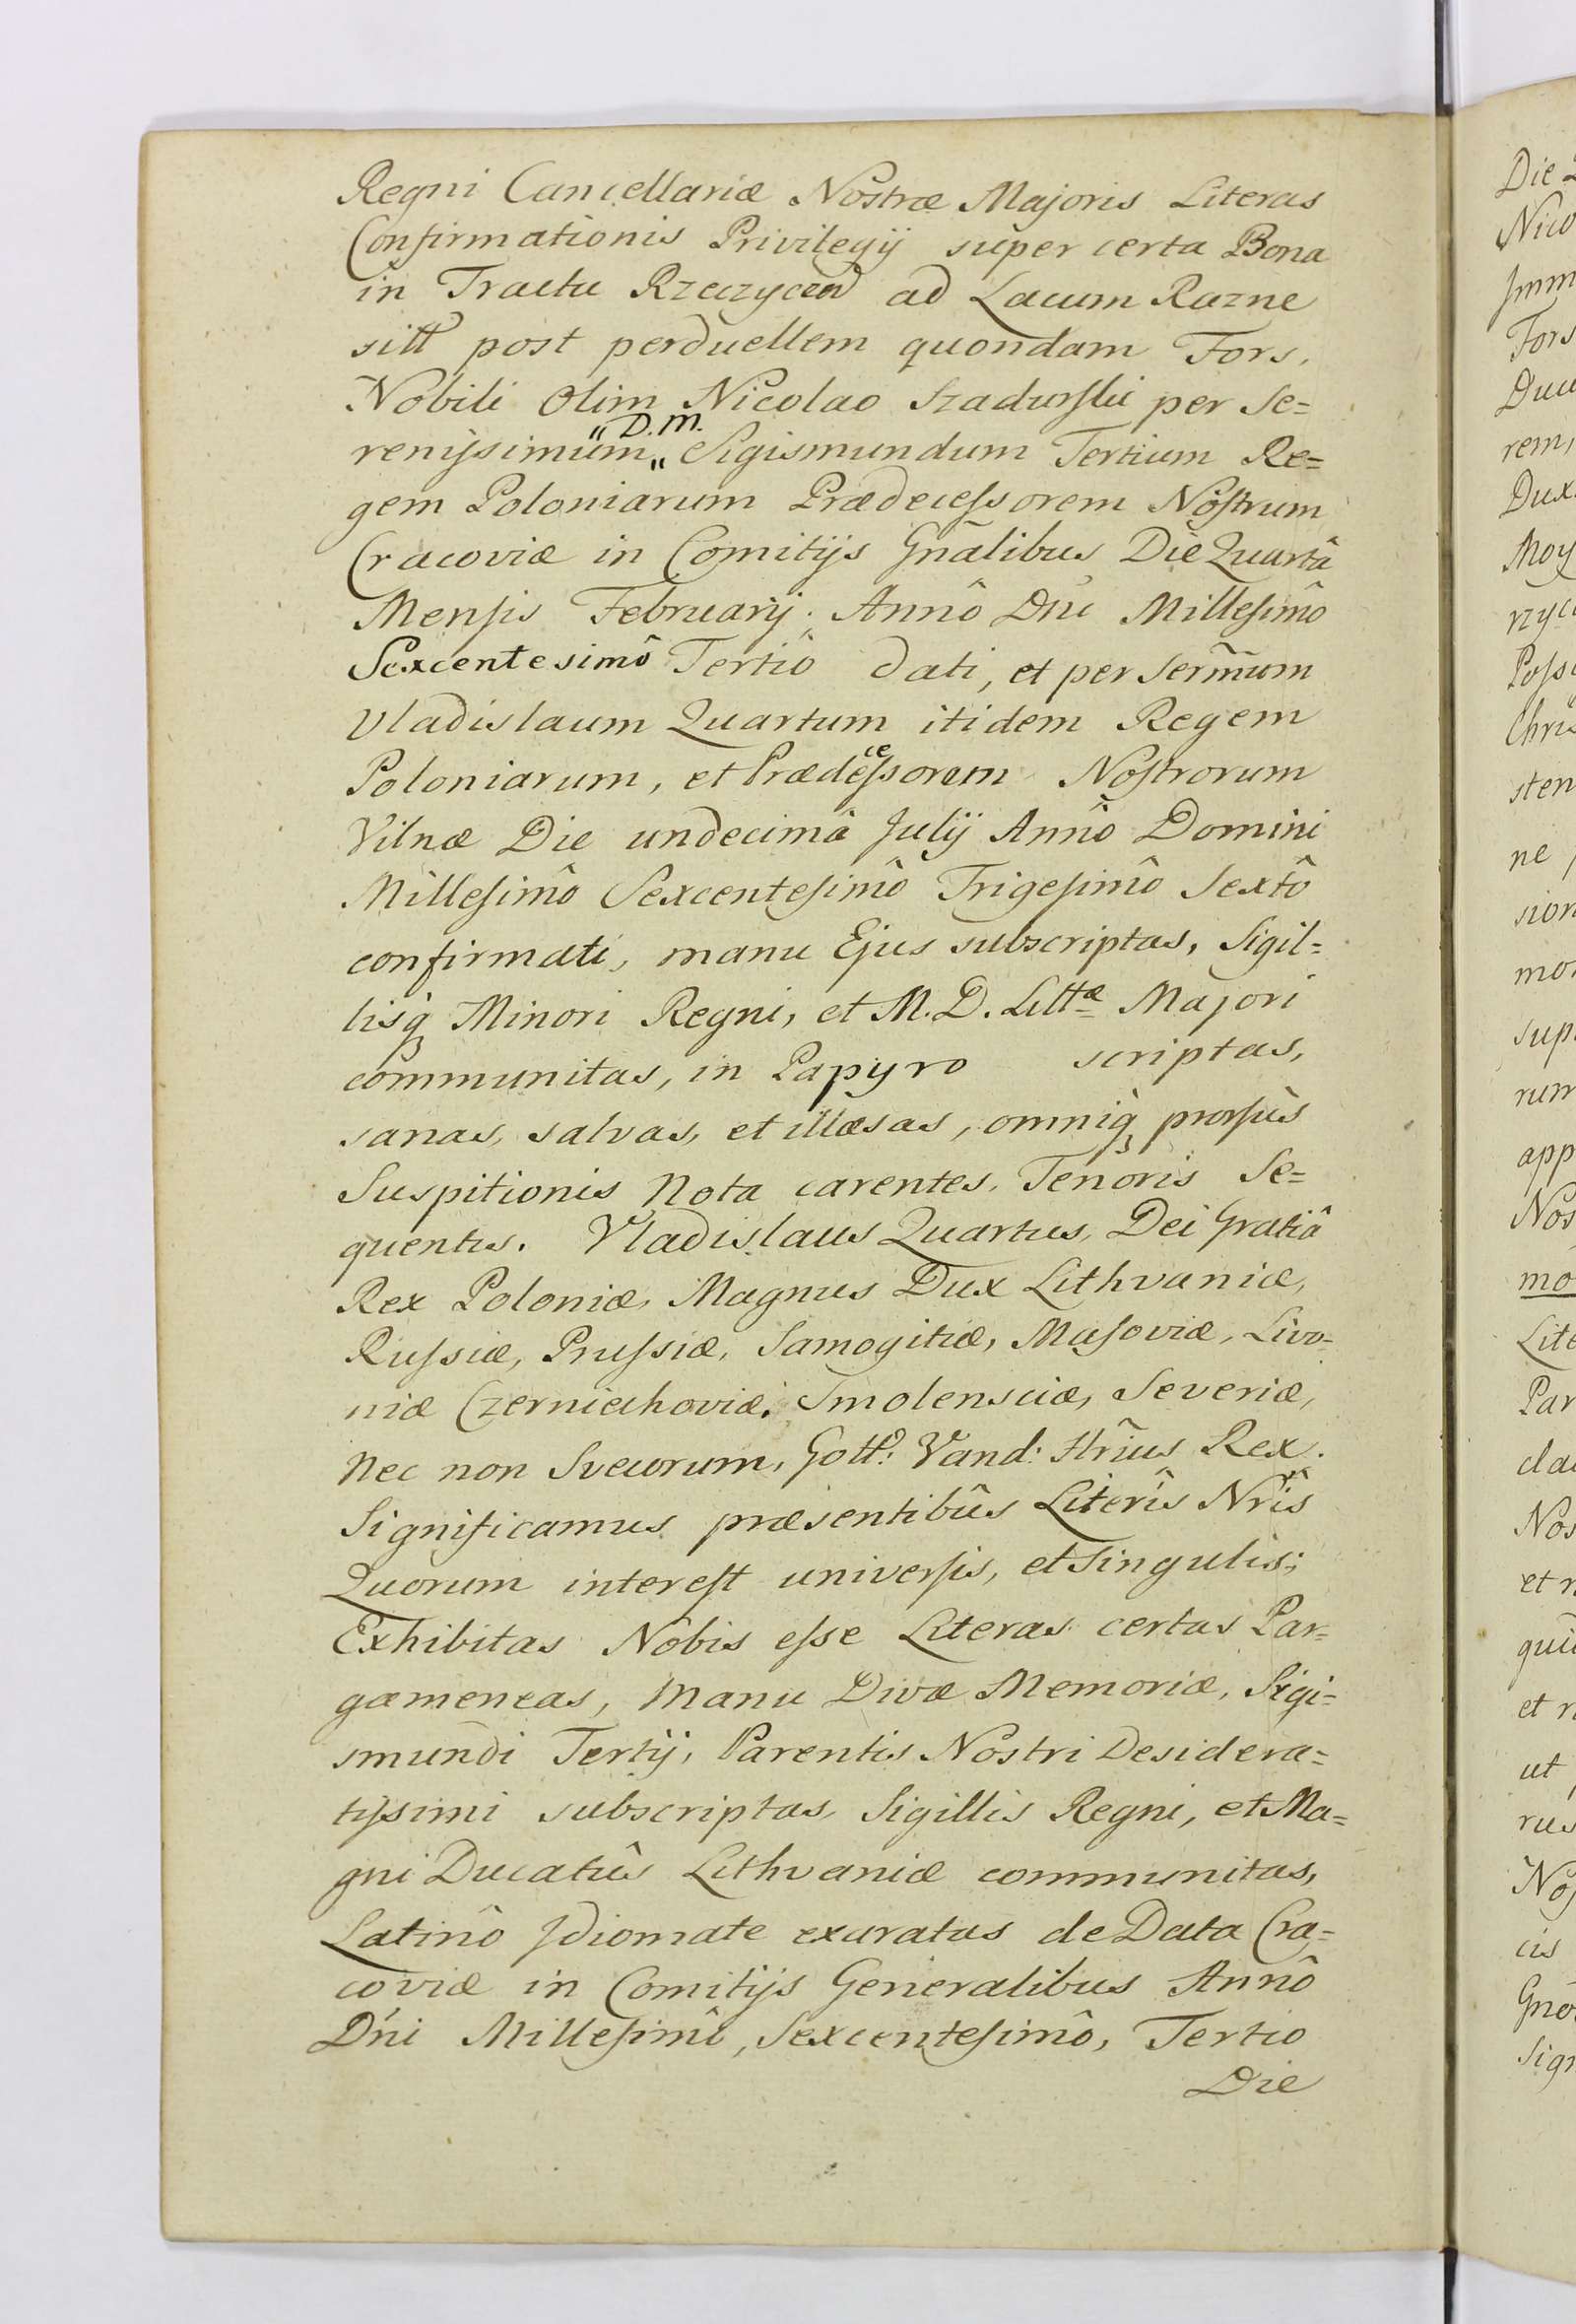 Regni Cancellariæ Nostræ Majoris Literas
Confirmationis Privilegij super certa Bona
in Tractu Rzeczycen ad Lacum Razne
sitt post perduellem quondam Fors,
Nobili Olim Nicolao Szadurſki per Se=
" D.M.
reniſsimum„ Sigismundum Tertium Re=
gem Poloniarum Prædeceſsorem Noſtrum
Cracoviæ in Comitijs Gnãlibus Die Quartâ
Menſis Februarij. Annô Dni Milleſimô
Sexcentesimô Tertiô dati, et per Serm̃um
Vladislaum Quartum itidem Regem
ce
Poloniarum, et Prædeſsorem Noſtrorum
Vilnæ Die undecimâ Julij Annô Domini
Milleſimô Sexcenteſimô Trigeſimô Sextô
confirmati, manu Ejus subscriptas, Sigil=
lisq Minori Regni, et M. D. Littæ Majori
communitas, in Papyro scriptas,
sanas, salvas, et illæsas, omniq prorſus
Suspitionis Nota carentes, Tenoris Se=
quentis. Vladislaus Quartus, Dei Gratiâ
Rex Poloniæ, Magnus Dux Lithvaniæ,
Ruſsiæ, Pruſsiæ, Samogitiæ, Maſoviæ, Livo=
niæ Czerniechoviæ, Smolensciæ, Severiæ,
Nec non Svecorum, Gott: Vand: Hrius Rex.
Significamus præsentibûs Literîs Nrîs
Quorum intereſt univerſis, et Singulis;
Exhibitas Nobis eſse Literas certas Par=
gameneas, Manu Divæ Memoriæ, Sigi=
smundi Tertij, Parentis Nostri Desidera=
tiſsimi subscriptas, Sigillis Regni, et Ma=
gni Ducatûs Lithvaniæ communitas,
Latinô Jdiomate exaratas de Data Cra=
coviæ in Comitijs Generalibus Annô
Dni Milleſimô, Sexcenteſimô, Tertio
Die
Die
Nico
Jmm
Fors
Ducu
rem,
Dux
Moy
rzyc
Poſs
Chris
sten
ne
sion
mo
sup
rum
app
Nos
mo
Lite
Par
cla
Nos
et n
qui
et n
ut
rus
Noſ
cis
Gno
Sign